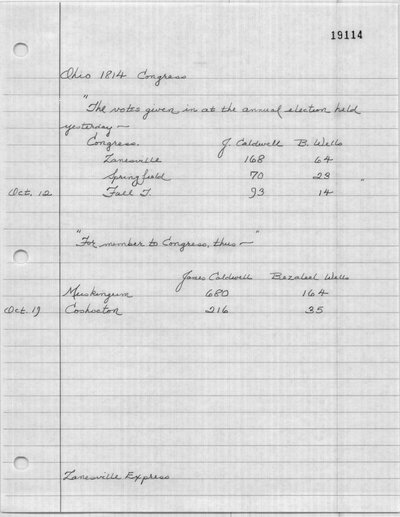 19114
Ohio 1814 Congress
"The votes given in at the annual election held
yesterday —
Congress. J. Caldwell B. Wells
Zanesville 168 64
Springfield 70 23 "
Oct. 12 Fall T. 93 14
"For member to Congress, thus — "
James Caldwell Bezaleel Wells
Muskingum 680 164
Oct. 19 Coshocton 216 35
Zanesville Express